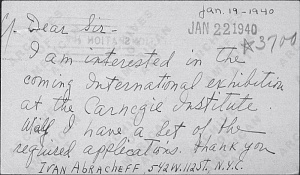 Jan. 19-1940
JAN 22 1940
Dear Sir-
*3700
I am interested in the
coming International exhibition
at the Carnegie Institute.
I have a set of the
required applications. thank you
IVAN ABRACHEFF, 542 W. 112 ST., N.Y.C.